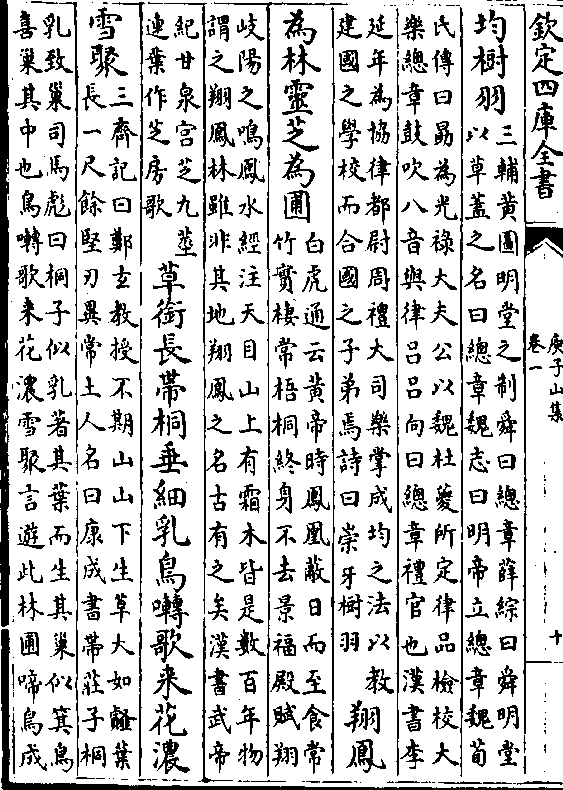 欽定四庫全書
庾子山集
卷一
十
均樹羽
三輔黄圖明堂之制舜曰總章薛綜曰舜明堂
以草蓋之名曰總章魏志曰明帝立總章魏荀
氏傳曰勗為光祿大夫公以魏杜夔所定律品檢校大
樂總章鼓吹八音與律吕吕向曰總章禮官也漢書李
延年為協律都尉周禮大司樂掌成均之法以教
建國之學校而合國之子弟焉詩曰崇牙樹羽
翔鳳
為林靈芝為圃
白虎通云黄帝時鳳凰蔽日而至食常
竹實棲常梧桐終身不去景福殿賦翔
岐陽之鳴鳳水經注天目山上有霜木皆是數百年物
謂之翔鳳林雖非其地翔鳳之名古有之矣漢書武帝
紀甘泉宫芝九莖
連葉作芝房歌
草銜長帶桐垂細乳鳥囀歌来花濃
雪聚
三齊記曰鄭玄教授不期山山下生草大如䪥葉
長一尺餘堅刃異常土人名曰康成書帶莊子桐
乳致巢司馬彪曰桐子似乳著其葉而生其巢似箕鳥
喜巢其中也鳥囀歌来花濃雪聚言遊此林圃啼鳥成